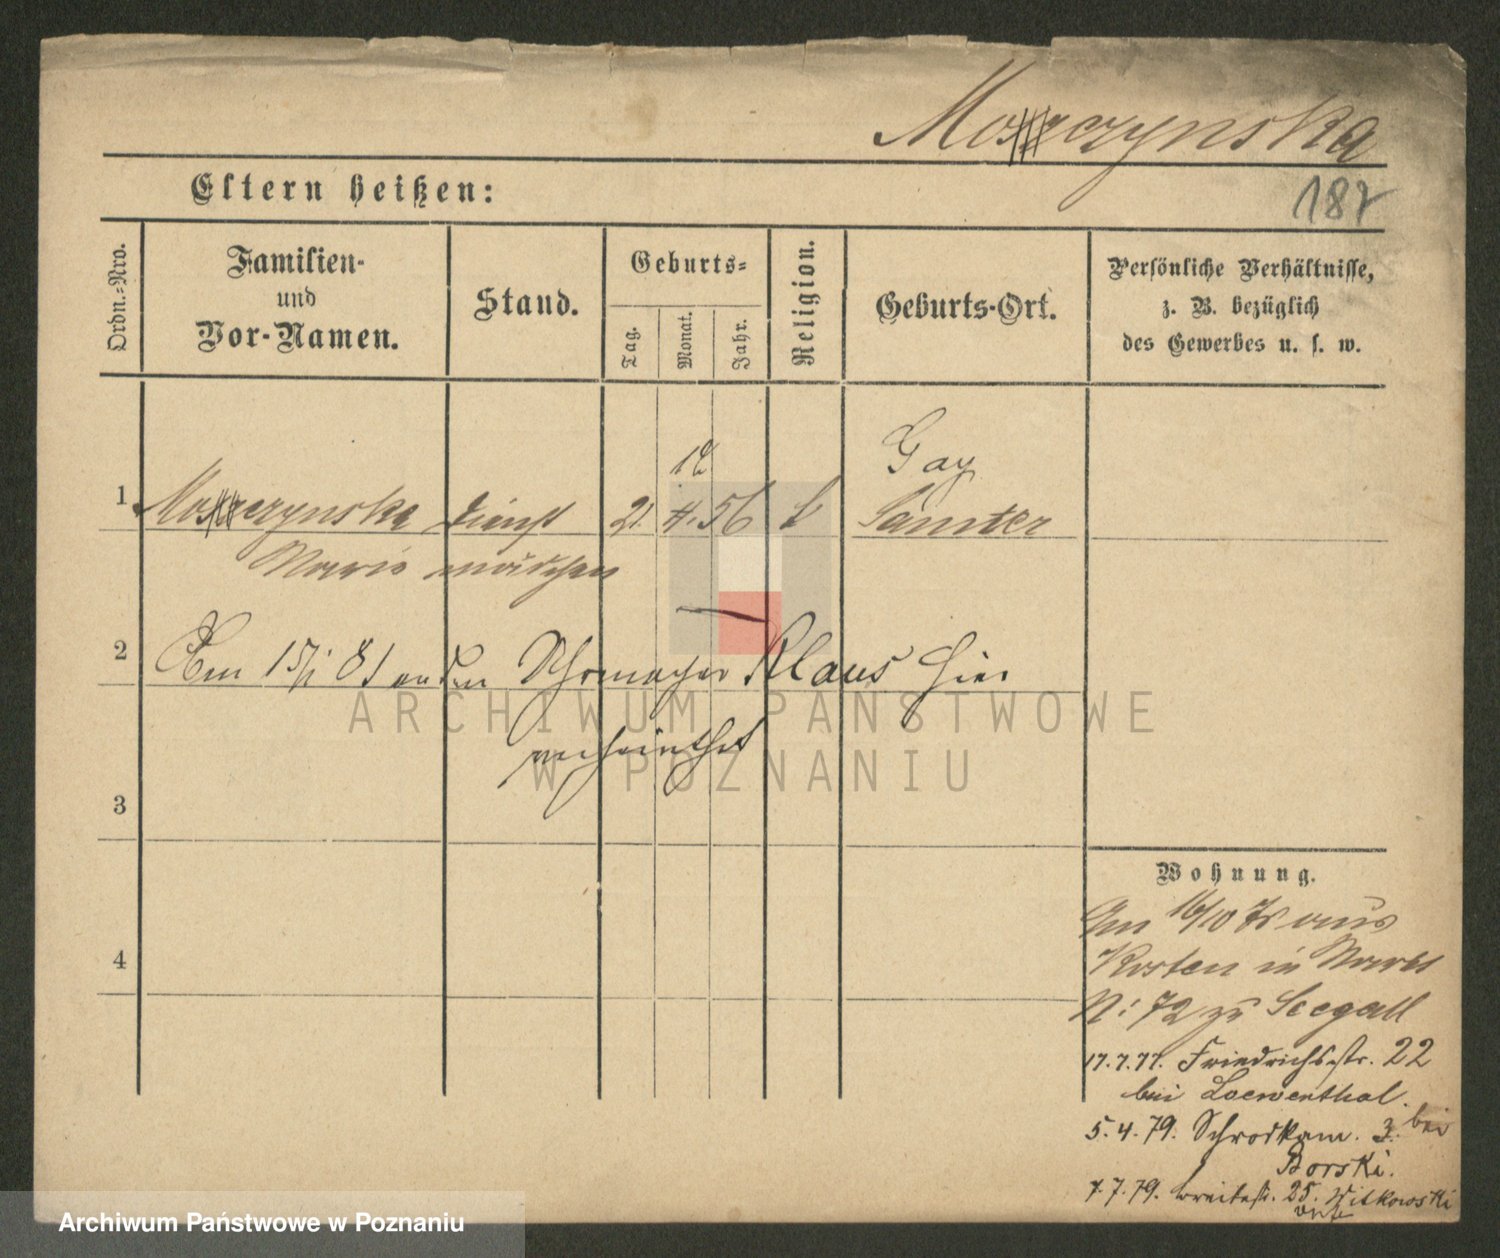 Moszczynska
187
Eltern heißen:
Ordn.-Nro.
Familien-
und
Vor-Namen.
Stand.
Geburts-
Tag.
Monat.
Jahr.
Religion.
Geburts-Ort.
Persönliche Verhältnisse,
z. B. bezüglich
des Gewerbes u. s. w.
12
Gay
1 Moszczynska Dienst 21. 4. 56 k Samter
Marie mädchen
2 Am 15/1 81 an den Schrmacher Klaus hier
verheirathet
3
4
Wohnung.
Am 16/10 75 aus
Kosten in Markt
N: 72 zu Seegall
17.7.77. Friedrichsstr. 22
bei Loewenthal.
5.4.79. Schrodkam. 3. bei
Borski.
7.7.79. Breitestr. 25. Witkowski
ARCHIWUM PAŃSTWOWE
W POZNANIU
Archiwum Państwowe w Poznaniu